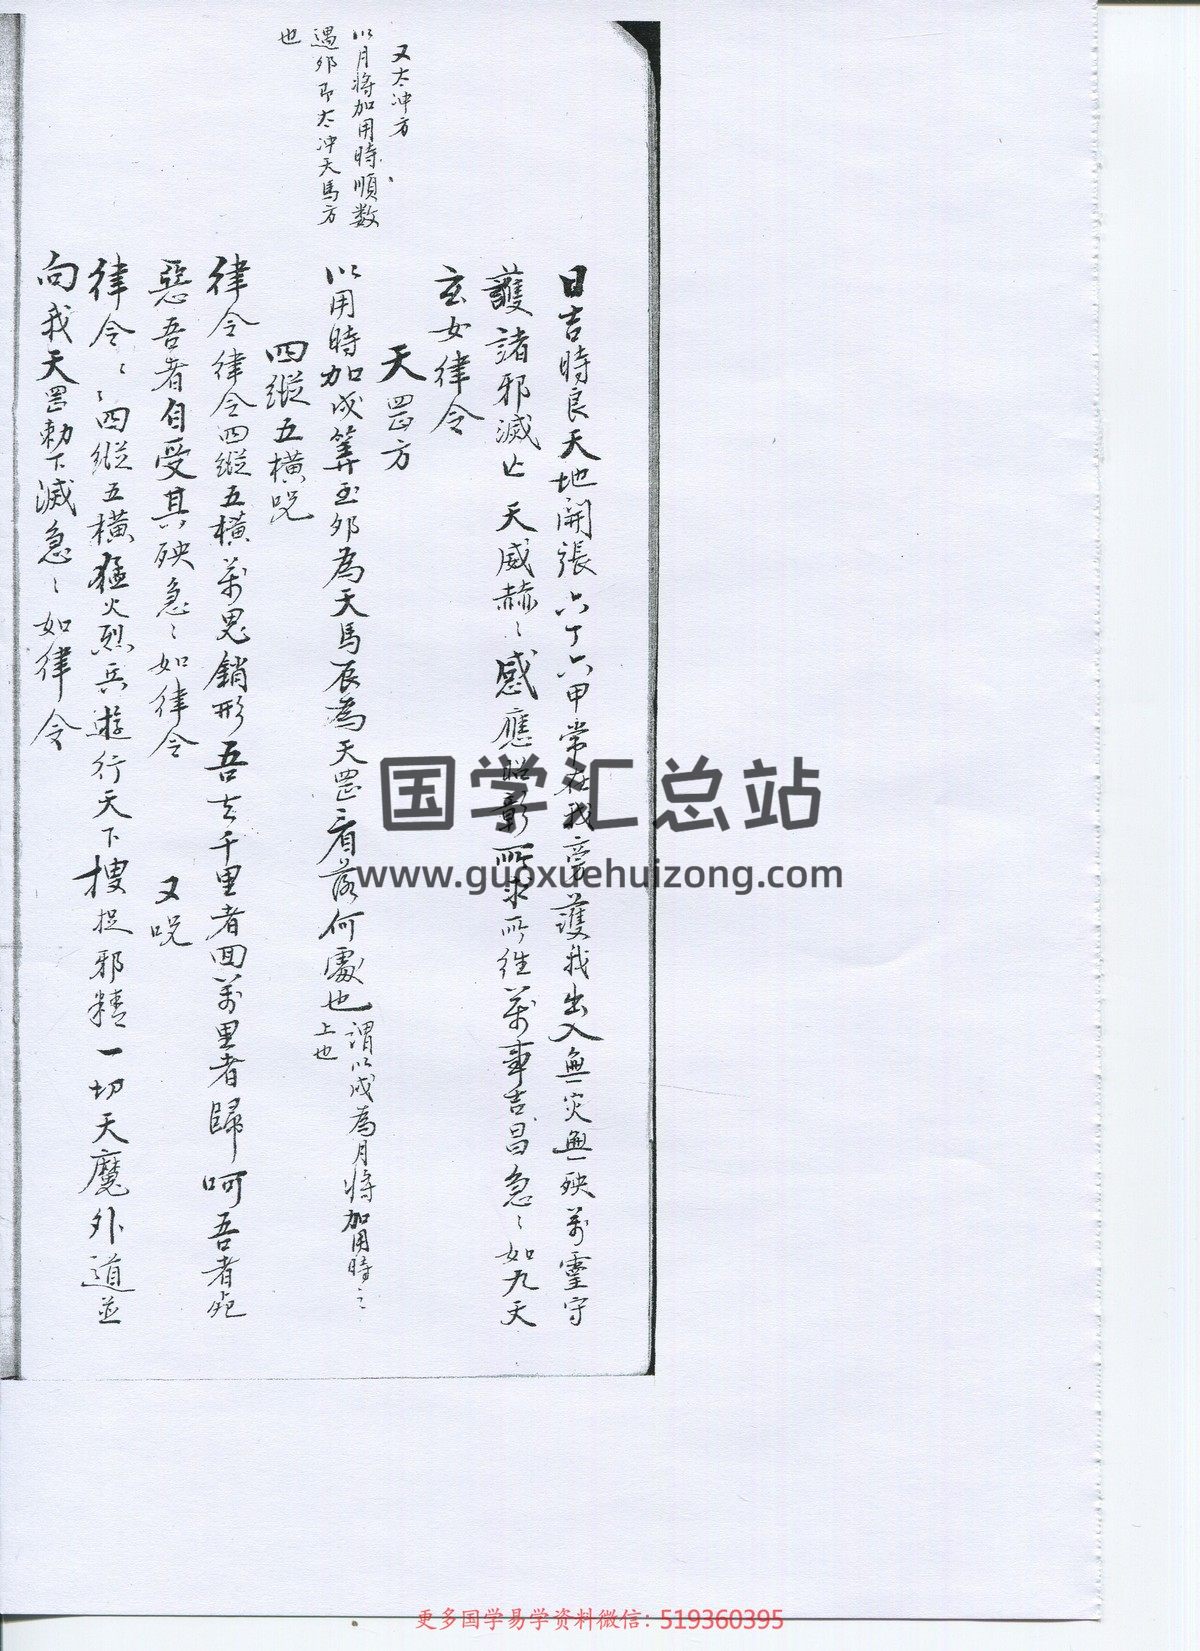 又太冲方
以月將加用時順数
遇夘即太冲天馬方
也
日吉時良天地開張六丁六甲常在我旁護我出入無災無殃萬靈守
護諸邪滅亡天威赫〻感應昭彰所求所往萬事吉昌急〻如九天
玄女律令
天罡方
以用時加戌筭至夘為天馬辰為天罡看落何處也謂以戌為月將加用時之
上也
四縱五橫咒
律令律令四縱五橫萬鬼銷形吾去千里者回萬里者歸呵吾者死
惡吾者自受其殃急〻如律令 又咒
律令〻〻四縱五橫猛火烈兵遊行天下搜捉邪精一切天魔外道並
向我天罡勅下滅急〻如律令
国学汇总站
www.guoxuehuizong.com
更多国学易学资料微信: 519360395